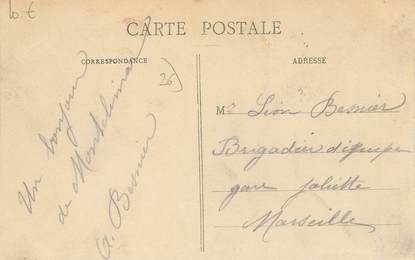 6 €
CARTE POSTALE
CORRESPONDANCE
ADRESSE
26)
Un bonjour
de Montélimar
G. Besnier
Mr Léon Besnier
Brigadier d'équipe
gare Joliette
Marseille